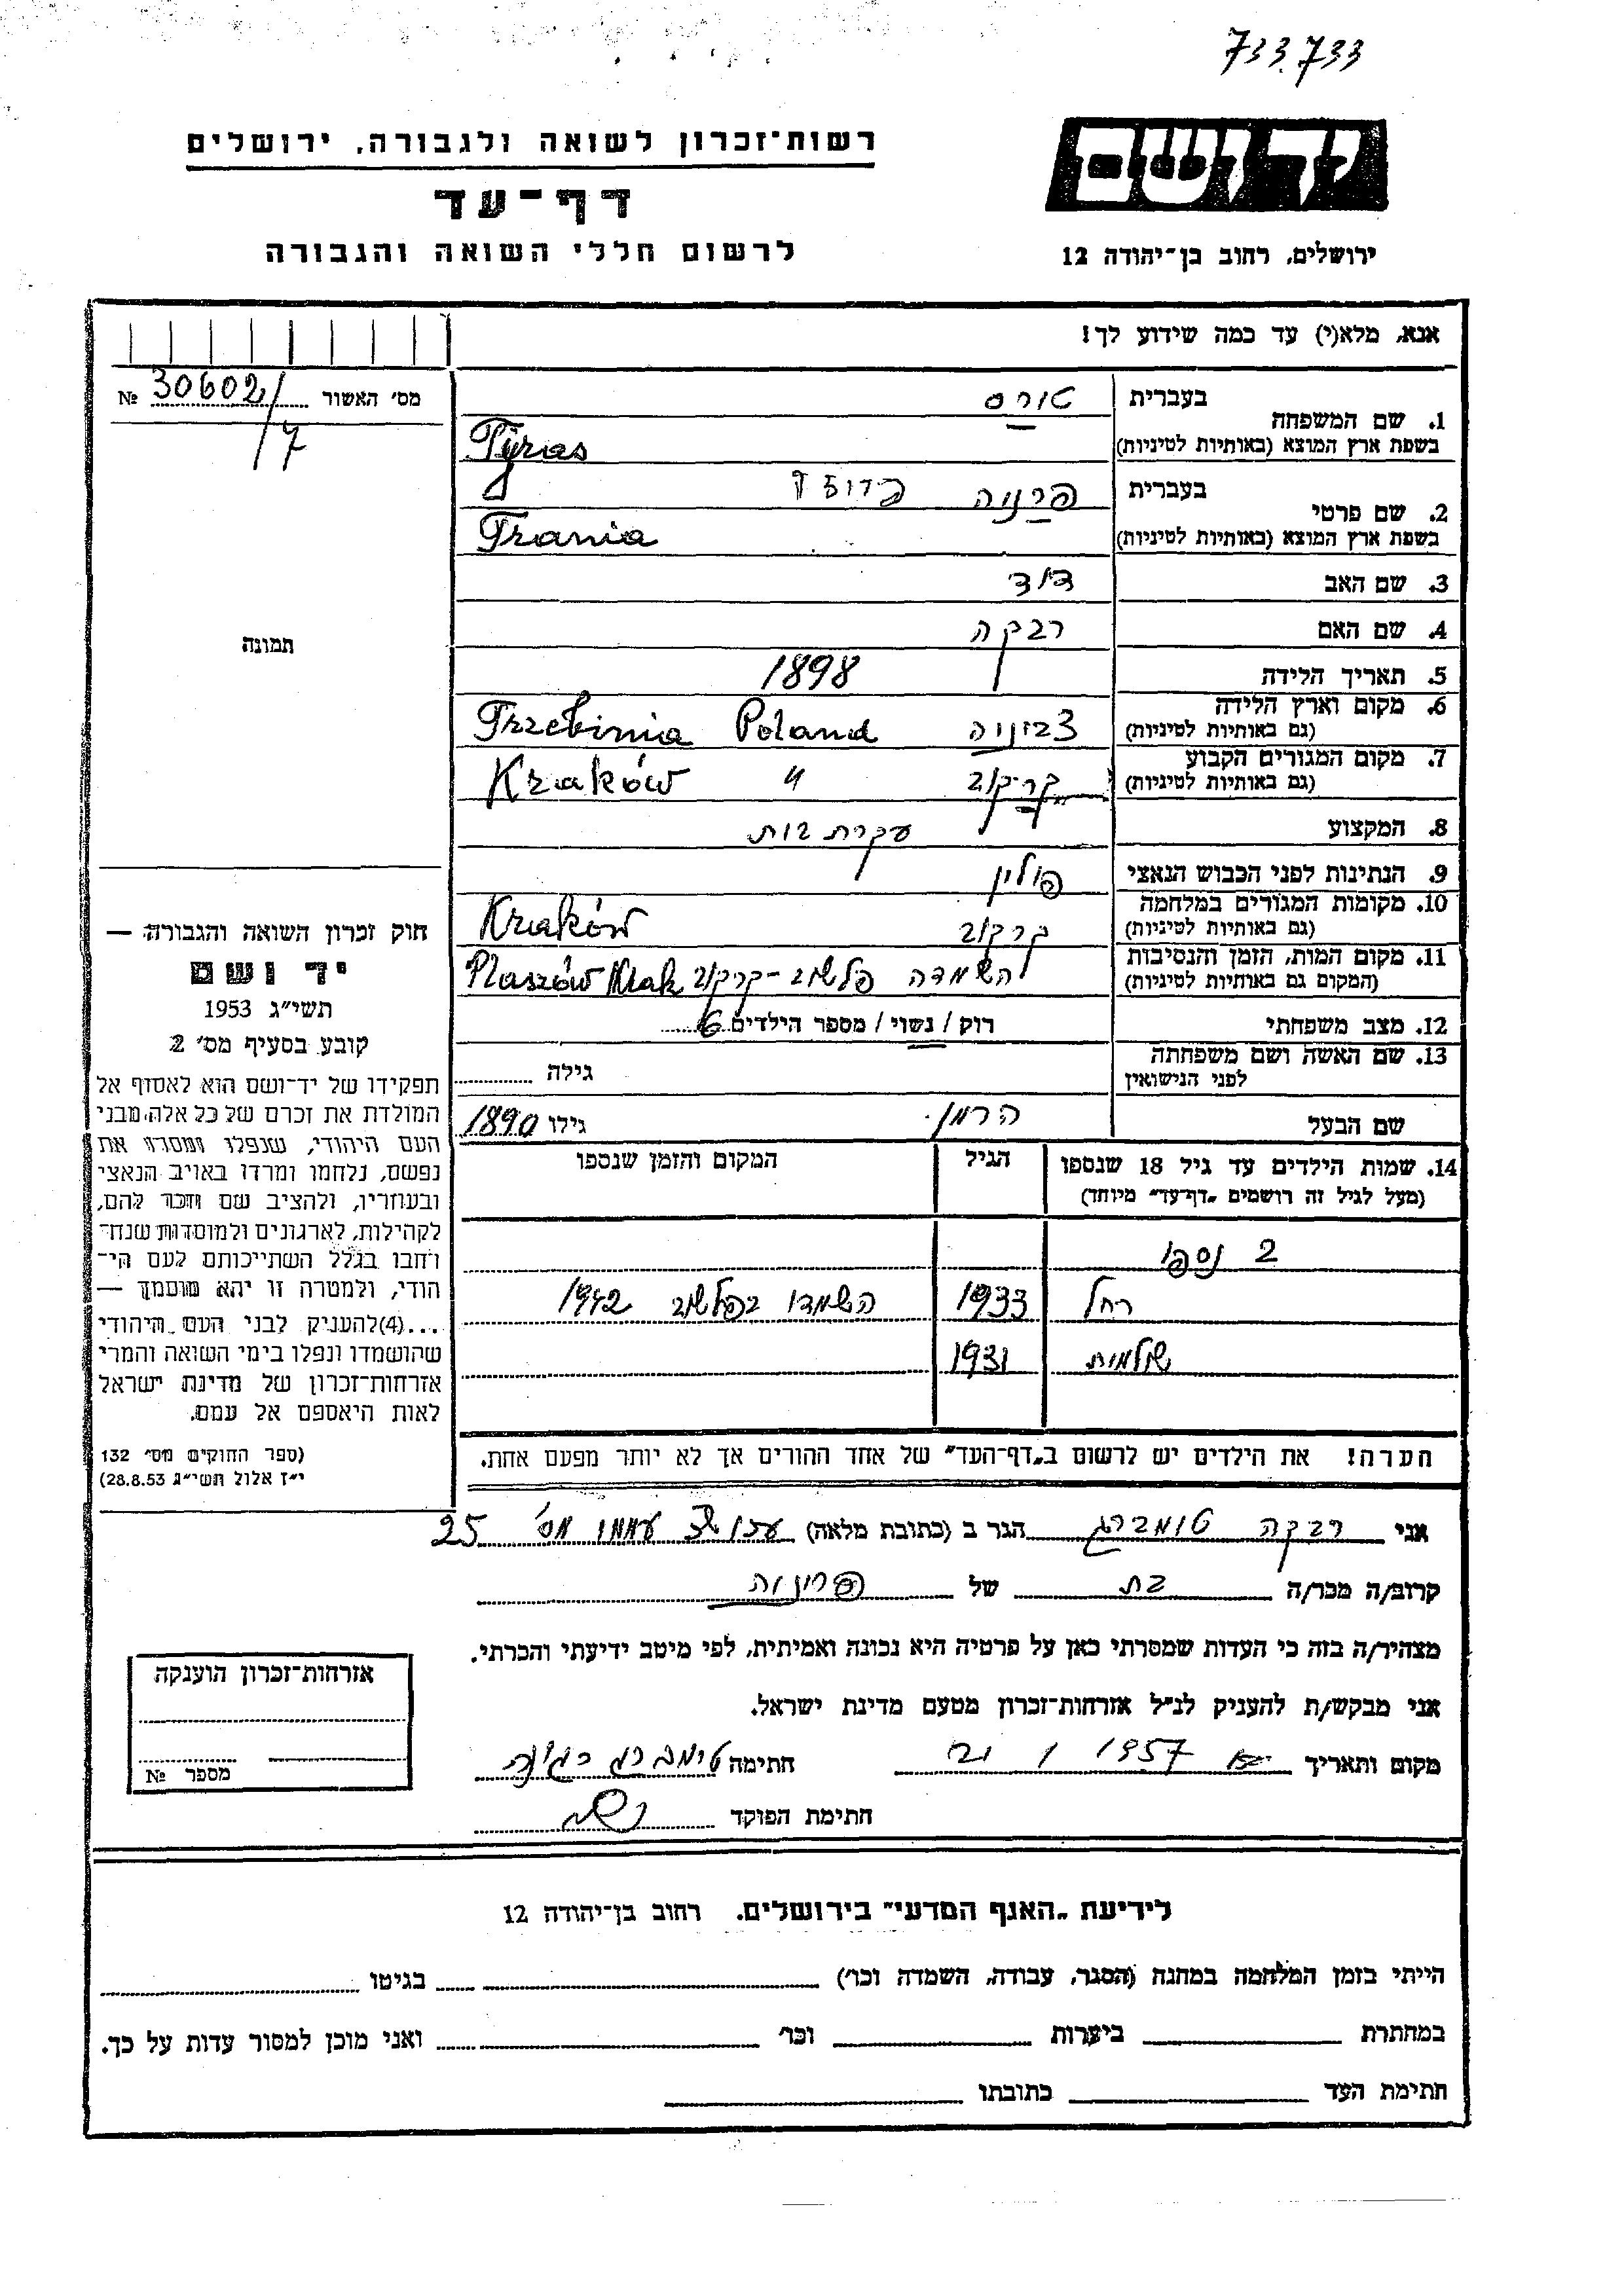 733.733
יד ושם
ירושלים, רחוב בן־יהודה 12
רשות־זכרון לשואה ולגבורה, ירושלים
דף־עד
לרשום חללי השואה והגבורה
אנא, מלא(י) עד כמה שידוע לך!
מס׳ האשור 30602/7 №
תמונה
1. שם המשפחה
בעברית טורס
בשפת ארץ המוצא (באותיות לטיניות)
2. שם פרטי
בעברית פרניה
בשפת ארץ המוצא (באותיות לטיניות) Frania
3. שם האב דוד
4. שם האם רבקה
5. תאריך הלידה 1898
6. מקום וארץ הלידה Poland Trzebinia
(גם באותיות לטיניות)
7. מקום המגורים הקבוע קרקוב " Kraków
(גם באותיות לטיניות)
8. המקצוע עקרת בית
9. הנתינות לפני הכבוש הנאצי פולין
10. מקומות המגורים במלחמה קרקוב Kraków
(גם באותיות לטיניות)
11. מקום המות, הזמן והנסיבות השמדה פלשוב - קרקוב Płaszów Krak
(המקום גם באותיות לטיניות)
12. מצב משפחתי רווק / נשוי / מספר הילדים 6
13. שם האשה ושם משפחתה
לפני הנישואין גילה
שם הבעל הרמן גילו 1890
14. שמות הילדים עד גיל 18 שנספו
(מעל לגיל זה רושמים „דף־עד״ מיוחד)
הגיל
המקום והזמן שנספו
2 נספו
רחל 1933 השמדו בפלשוב 1942
שולמית 1931
הערה! את הילדים יש לרשום ב„דף־העד״ של אחד ההורים אך לא יותר מפעם אחת.
חוק זכרון השואה והגבורה —
יד ושם
תשי״ג 1953
קובע בסעיף מס׳ 2
תפקידו של יד־ושם הוא לאסוף אל
המולדת את זכרם של כל אלה מבני
העם היהודי, שנפלו ומסרו את
נפשם, נלחמו ומרדו באויב הנאצי
ובעוזריו, ולהציב שם וזכר להם,
לקהילות, לארגונים ולמוסדות שנח־
רבו בגלל השתייכותם לעם הי־
הודי, ולמטרה זו יהא מוסמך —
...(4)להעניק לבני העם היהודי
שהושמדו ונפלו בימי השואה והמרי
אזרחות־זכרון של מדינת ישראל
לאות היאספם אל עמם.
(ספר החוקים מס׳ 132
י״ז אלול תשי״ג 28.8.53)
אני רבקה טומברג הגר ב (כתובת מלאה) מס׳ 25
קרוב/ה מכר/ה בת של
מצהיר/ה בזה כי העדות שמסרתי כאן על פרטיה היא נכונה ואמיתית, לפי מיטב ידיעתי והכרתי.
אני מבקש/ת להעניק לנ״ל אזרחות־זכרון מטעם מדינת ישראל.
מקום ותאריך 1957 חתימה
חתימת הפוקד
אזרחות־זכרון הוענקה
מספר №
לידיעת „האגף המדעי״ בירושלים. רחוב בן־יהודה 12
הייתי בזמן המלחמה במחנה (הסגר, עבודה, השמדה וכו׳) בגיטו
במחתרת ביערות וכו׳ ואני מוכן למסור עדות על כך.
חתימת העד כתובתו